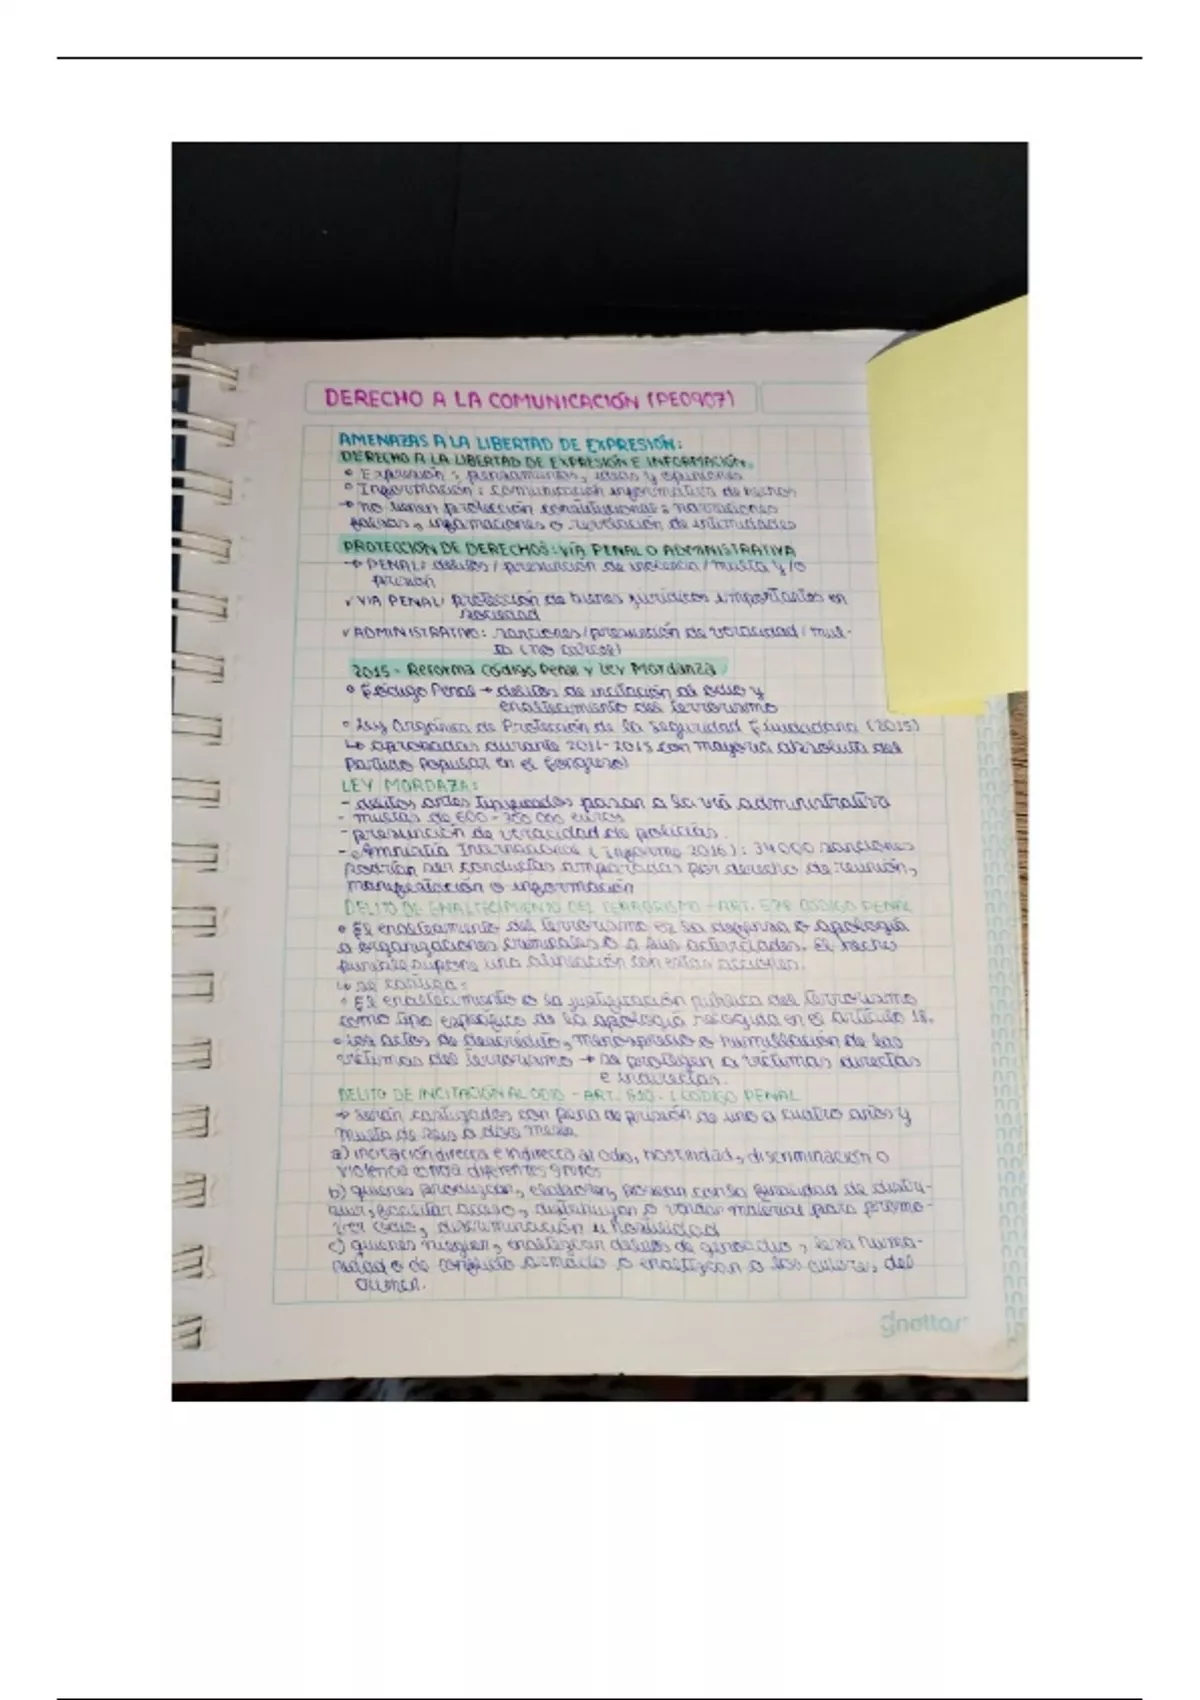 DERECHO A LA COMUNICACIÓN (PE0907)
AMENAZAS A LA LIBERTAD DE EXPRESIÓN:
DERECHO A LA LIBERTAD DE EXPRESIÓN E INFORMACIÓN.
• Expresión: pensamientos, ideas y opiniones
• Información: comunicación informativa de hechos
→ no tienen protección constitucional: narraciones
falsas, infamaciones o revelación de intimidades
PROTECCIÓN DE DERECHOS: VÍA PENAL O ADMINISTRATIVA
→ PENAL: delitos / presunción de inocencia / multa y/o
prisión
✓ VIA PENAL: protección de bienes jurídicos importantes en
sociedad
✓ ADMINISTRATIVO: sanciones / presunción de veracidad / mul-
ta (no cárcel)
2015 - Reforma Código Penal y Ley Mordanza
• Código Penal → delitos de incitación al odio y
enaltecimiento del terrorismo
• Ley Orgánica de Protección de la Seguridad Ciudadana (2015)
↳ aprobadas durante 2011-2015 con mayoría absoluta del
Partido Popular en el Congreso)
LEY MORDAZA:
- delitos antes tipificados pasan a la vía administrativa
- multas de 600 - 000 euros
- presunción de veracidad de policías.
- Amnistía Internacional (Informe 2016): 34000 sanciones
podrían ser conductas amparadas por derecho de reunión,
manifestación o información
DELITO DE ENALTECIMIENTO DEL TERRORISMO - ART. 578 CÓDIGO PENAL
• El enaltecimiento del terrorismo es la defensa o apología
a organizaciones criminales o a sus actividades. El hecho
punible supone una alineación con estas acciones.
↳ se castiga:
• El enaltecimiento o la justificación pública del terrorismo
como tipo específico de la apología recogida en el artículo 18.
• Los actos de descrédito, menosprecio o humillación de las
víctimas del terrorismo → se protegen a víctimas directas
e indirectas.
DELITO DE INCITACIÓN AL ODIO - ART. 510. 1 CÓDIGO PENAL
→ Serán castigados con pena de prisión de uno a cuatro años y
multa de seis a doce meses
a) incitación directa e indirecta al odio, hostilidad, discriminación o
violencia contra diferentes grupos
b) quienes produzcan, elaboren, posean con la finalidad de distri-
buir, facilitar acceso, distribuyan o vendan material para promo-
ver odio, discriminación u hostilidad
c) quienes nieguen, enaltezcan delitos de genocidio, lesa huma-
nidad o de conflicto armado o enaltezcan a los autores del
crimen.
gnottas